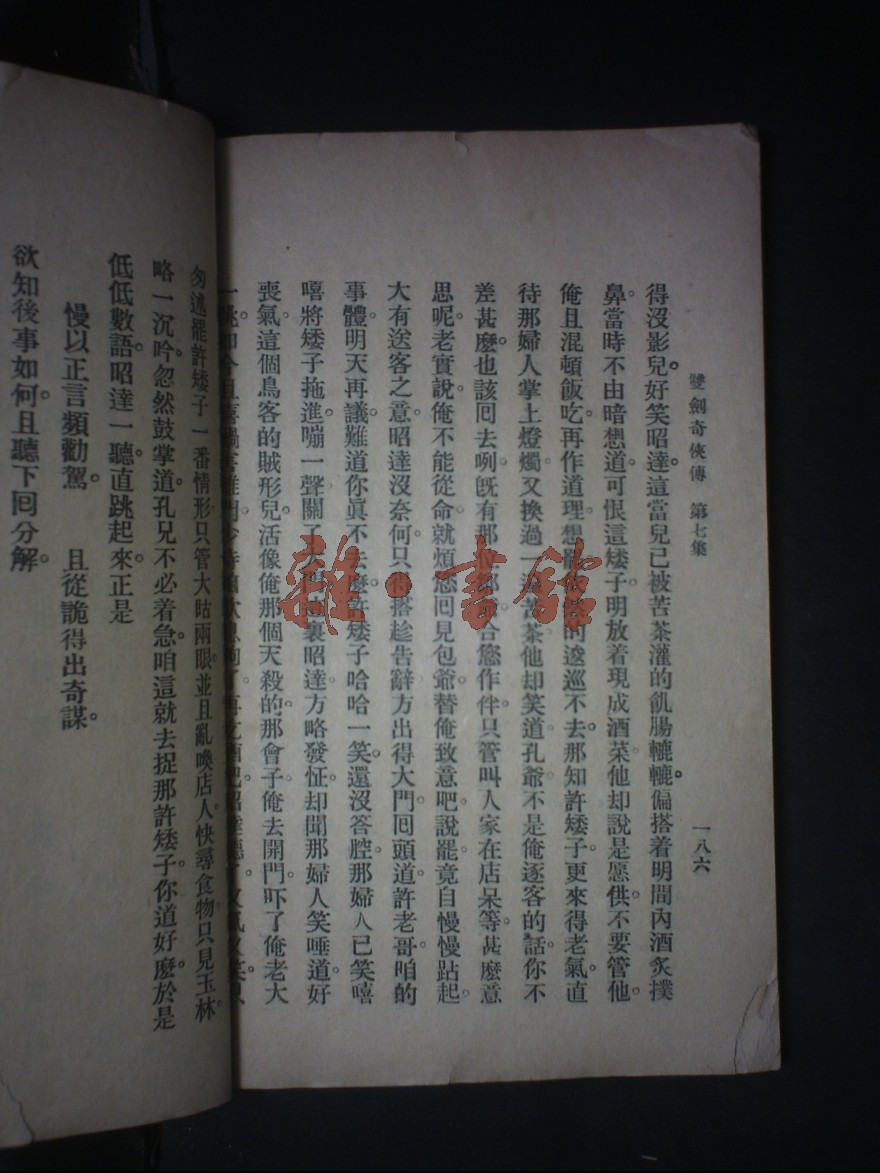 雙劍奇俠傳 第七集
一八六
得沒影兒。好笑昭達這當兒已被苦茶灌的飢腸轆轆。偏搭着明間內酒炙撲
鼻。當時不由暗想道。可恨這矮子。明放着現成酒菜。他却說是愿供。不要管他。
俺且混頓飯吃。再作道理。想罷依然的逡巡不去。那知許矮子更來得老氣。直
待那婦人掌上燈燭。又換過一道苦茶。他却笑道。孔爺不是俺逐客的話。你不
差甚麽。也該回去咧。旣有那位都合您作伴。只管叫人家在店呆等。甚麽意
思呢。老實說。俺不能從命。就煩您回見包爺。替俺致意吧。說罷。竟自慢慢跕起。
大有送客之意。昭達沒奈何。只得搭趁告辭。方出得大門。回頭道。許老哥。咱的
事體。明天再議。難道你眞不去麽。許矮子哈哈一笑。還沒答腔。那婦人已笑嘻
嘻將矮子拖進。嘣一聲關了大門。這裏昭達方略發怔。却聞那婦人笑唾道。好
喪氣。這個鳥客的賊形兒。活像俺那個天殺的。那會子俺去開門。吓了俺老大
一跳。如今且喜
勿述。罷許矮子一番情形。只管大咕兩眼。並且亂喚店人。快尋食物。只見玉林
略一沉吟。忽然鼓掌道。孔兄不必着急。咱這就去捉那許矮子。你道好麽。於是
低低數語。昭達一聽。直跳起來。正是
慢以正言頻勸駕。 且從詭得出奇謀。
欲知後事如何。且聽下回分解。
雜·書館